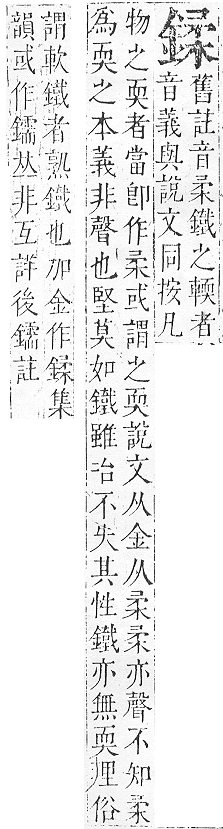 鍒
舊註音柔鐵之輭者
音義與說文同按凡
物之耎者當卽作柔或謂之耎說文从金从柔柔亦聲不知柔
為耎之本義非聲也堅莫如鐵雖冶不失其性鐵亦無耎理俗
謂軟鐵者熟鐵也加金作鍒集
韻或作鑐𠀤非互詳後鑐註